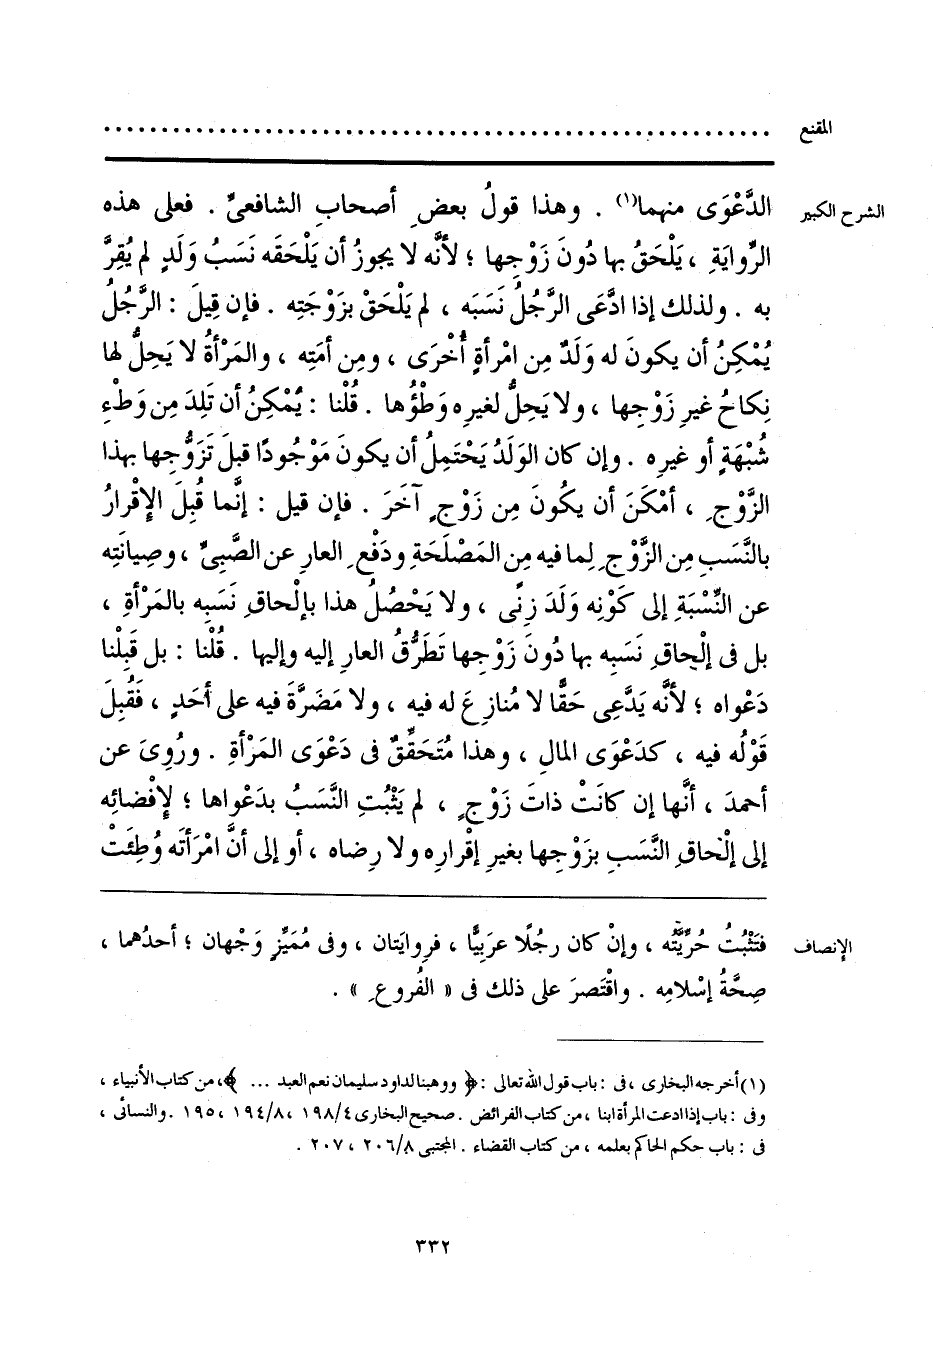 المقنع ..........................................................
الشرح الكبير الدَّعْوَى منهما(١) . وهذا قولُ بعضِ أصحابِ الشافعىِّ . فعلى هذه
الرِّوايَةِ ، يَلْحَقُ بها دُونَ زَوْجِها ؛ لأنَّه لا يجوزُ أن يَلْحَقَه نَسَبُ وَلَدٍ لم يُقِرَّ
به . ولذلك إذا ادَّعَى الرَّجُلُ نَسَبَه ، لم يَلْحَقْ بزَوْجَتِه . فإن قِيلَ : الرَّجُلُ
يُمْكِنُ أن يكونَ له وَلَدٌ مِن امْرأةٍ أُخْرَى ، ومِن أمَتِه ، والمَرْأةُ لا يَحِلُّ لها
نِكاحُ غيرِ زَوْجِها ، ولا يَحِلُّ لغيرِه وَطْؤُها . قُلْنا : يُمْكِنُ أن تَلِدَ مِن وَطْءِ
شُبْهَةٍ أو غيرِه . وإن كان الوَلَدُ يَحْتَمِلُ أن يكونَ مَوْجُودًا قبلَ تَزَوُّجِها بهذا
الزَّوْجِ ، أمْكَنَ أن يكُونَ مِن زَوْجٍ آخَرَ . فإن قيل : إنَّما قُبِلَ الإِقْرارُ
بالنَّسَبِ مِن الزَّوْجِ لِما فيه مِن المَصْلَحَةِ ودَفْعِ العارِ عن الصَّبِىِّ ، وصِيانَتِه
عن النِّسْبَةِ إلى كَوْنِه وَلَدَ زِنًى ، ولا يَحْصُلُ هذا بإلْحاقِ نَسَبِه بالمَرْأةِ ،
بل فى إلْحاقِ نَسَبِه بها دُونَ زَوْجِها تَطَرُّقُ العارِ إليه وإليها . قُلْنا : بل قَبِلْنا
دَعْواه ؛ لأنَّه يَدَّعِى حَقًّا لا مُنازِعَ له فيه ، ولا مَضَرَّةَ فيه على أحَدٍ ، فَقُبِلَ
قَوْلُه فيه ، كدَعْوَى المالِ ، وهذا مُتَحَقِّقٌ فى دَعْوَى المَرْأةِ . ورُوِىَ عن
أحمدَ ، أنَّها إن كانَتْ ذاتَ زَوْجٍ ، لم يَثْبُتِ النَّسَبُ بدَعْواها ؛ لإفْضائِه
إلى إلْحاقِ النَّسَبِ بزَوْجِها بغيرِ إقْرارِه ولا رِضاه ، أو إلى أنَّ امْرَأتَه وُطِئَتْ
الإنصاف فتَثْبُتُ حُرِّيَّتُه ، وإنْ كان رجُلًا عرَبِيًّا ، فرِوايَتان ، وفى مُمَيِّزٍ وَجْهان ؛ أحدُهما ،
صِحَّةُ إسْلامِه . واقْتَصرَ على ذلك فى « الفُروعِ » .
(١) أخرجه البخارى ، فى : باب قول الله تعالى : ﴿ ووهبنا لداود سليمان نعم العبد ... ﴾ ، من كتاب الأنبياء ،
وفى : باب إذا ادعت المرأة ابنا ، من كتاب الفرائض . صحيح البخارى ٤/ ١٩٨ ، ٨/ ١٩٤ ، ١٩٥ . والنسائى ،
فى : باب حكم الحاكم بعلمه ، من كتاب القضاء . المجتبى ٨/ ٢٠٦ ، ٢٠٧ .
٣٣٢